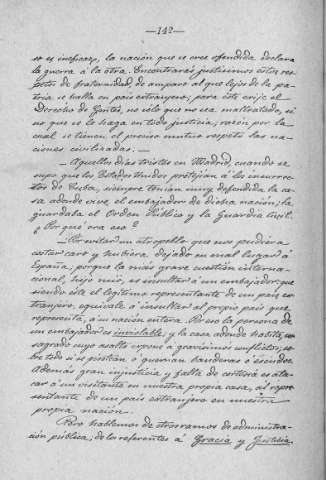 —142—
so es ineficaz, la nación que se cree ofendida declara
la guerra á la otra. Encontrarás justísimos estos res-
petos de fraternidad, de amparo al que lejos de la pa-
tria se halla en país extranjero; pues esto exije el
Derecho de Gentes, no sólo que no sea maltratado, si
no que se le haga en todo justicia; razón por la
cual se tienen el preciso mutuo respeto las na-
ciones civilizadas.—
—Aquellos días tristes en Madrid, cuando se
supo que los Estados Unidos protejían á los insurrec-
tos de Cuba, siempre tenían muy defendida la ca-
sa adonde vive el embajador de dicha nación; la
guardaba el Orden Público y la Guardia Civil.
¿Por qué era eso?
—Por evitar un atropello que nos pudiera
costar caro y hubiera dejado en mal lugar á
España, porque la más grave cuestión interna-
cional, hijo mío, es insultar á un embajador; que
siendo éste el legítimo representante de un país ex-
tranjero, equivale á insultar al propio país que
representa, á su nación entera. Por eso la persona de
un embajador es inviolable, y la casa adonde habita, con-
sagrado cuyo asalto expone á gravísimos conflictos, so-
bre todo si se pisotean ó queman banderas ó escudos.
Además gran injusticia y falta de cortesía es ata-
car á un visitante en nuestra propia casa, al repre-
sentante de un país extranjero en nuestra
propia nación.
Pero hablemos de otros ramos de administra-
ción pública; de los referentes á Gracia y Justicia.